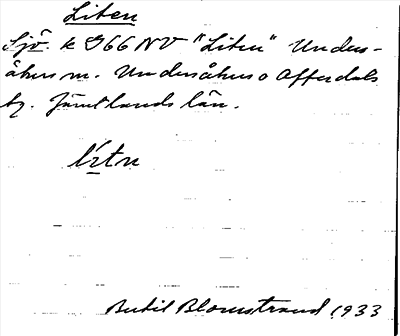 Liten
Sjö. k G66 NV "Liten" Unders-
åkers sn. Undersåkers o Offerdals
tg. Jämtlands län.
Bertil Blomstrand 1933